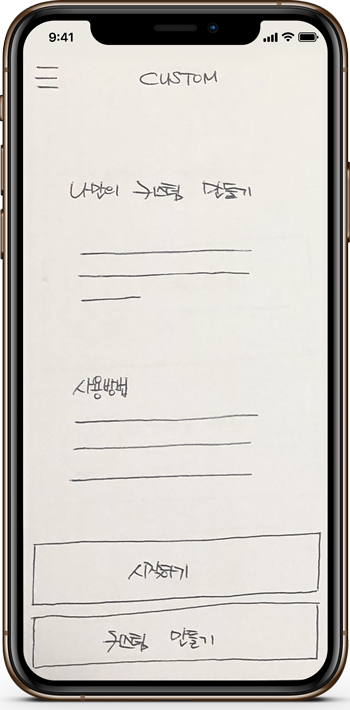 9:41
CUSTOM
나만의 커스텀 만들기
사용방법
시작하기
커스텀 만들기